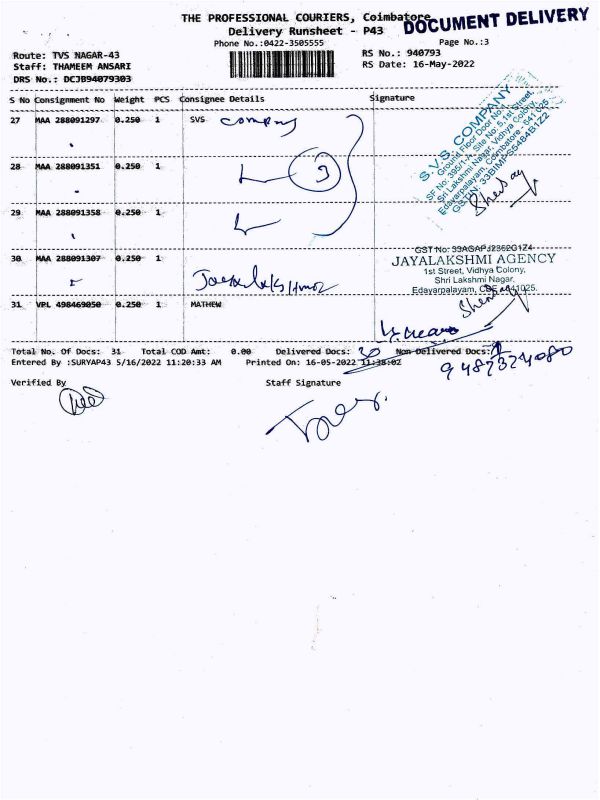 THE PROFESSIONAL COURIERS, Coimbatore
DOCUMENT DELIVERY
Delivery Runsheet - P43
Phone No.:0422-3505555
Page No.:3
Route: TVS NAGAR-43
RS No.: 940793
Staff: THAMEEM ANSARI
RS Date: 16-May-2022
DRS No.: DCJB94079303
S No Consignment No Weight PCS Consignee Details Signature
27 MAA 288091297 0.250 1 SVS company
S.V.S. COMPANY
Ground Floor Door No.
SF No: 395/1-A, Site No: 5, 1st Street,
Sri Lakshmi Nagar, Vidhya Colony,
Edayarpalayam, Coimbatore - 641 025.
28 MAA 288091351 0.250 1
3
29 MAA 288091358 0.250 1
30 MAA 288091307 0.250 1
GST No: 33AGAPJ2362G1Z4
JAYALAKSHMI AGENCY
1st Street, Vidhya Colony,
Shri Lakshmi Nagar,
Edayarpalayam, CBE-641025.
31 VPL 498469050 0.250 1 MATHEW
Total No. Of Docs: 31 Total COD Amt: 0.00 Delivered Docs: 30 Non Delivered Docs: 1
Entered By :SURYAP43 5/16/2022 11:20:33 AM Printed On: 16-05-2022 11:38:02
9487324080
Verified By
Staff Signature